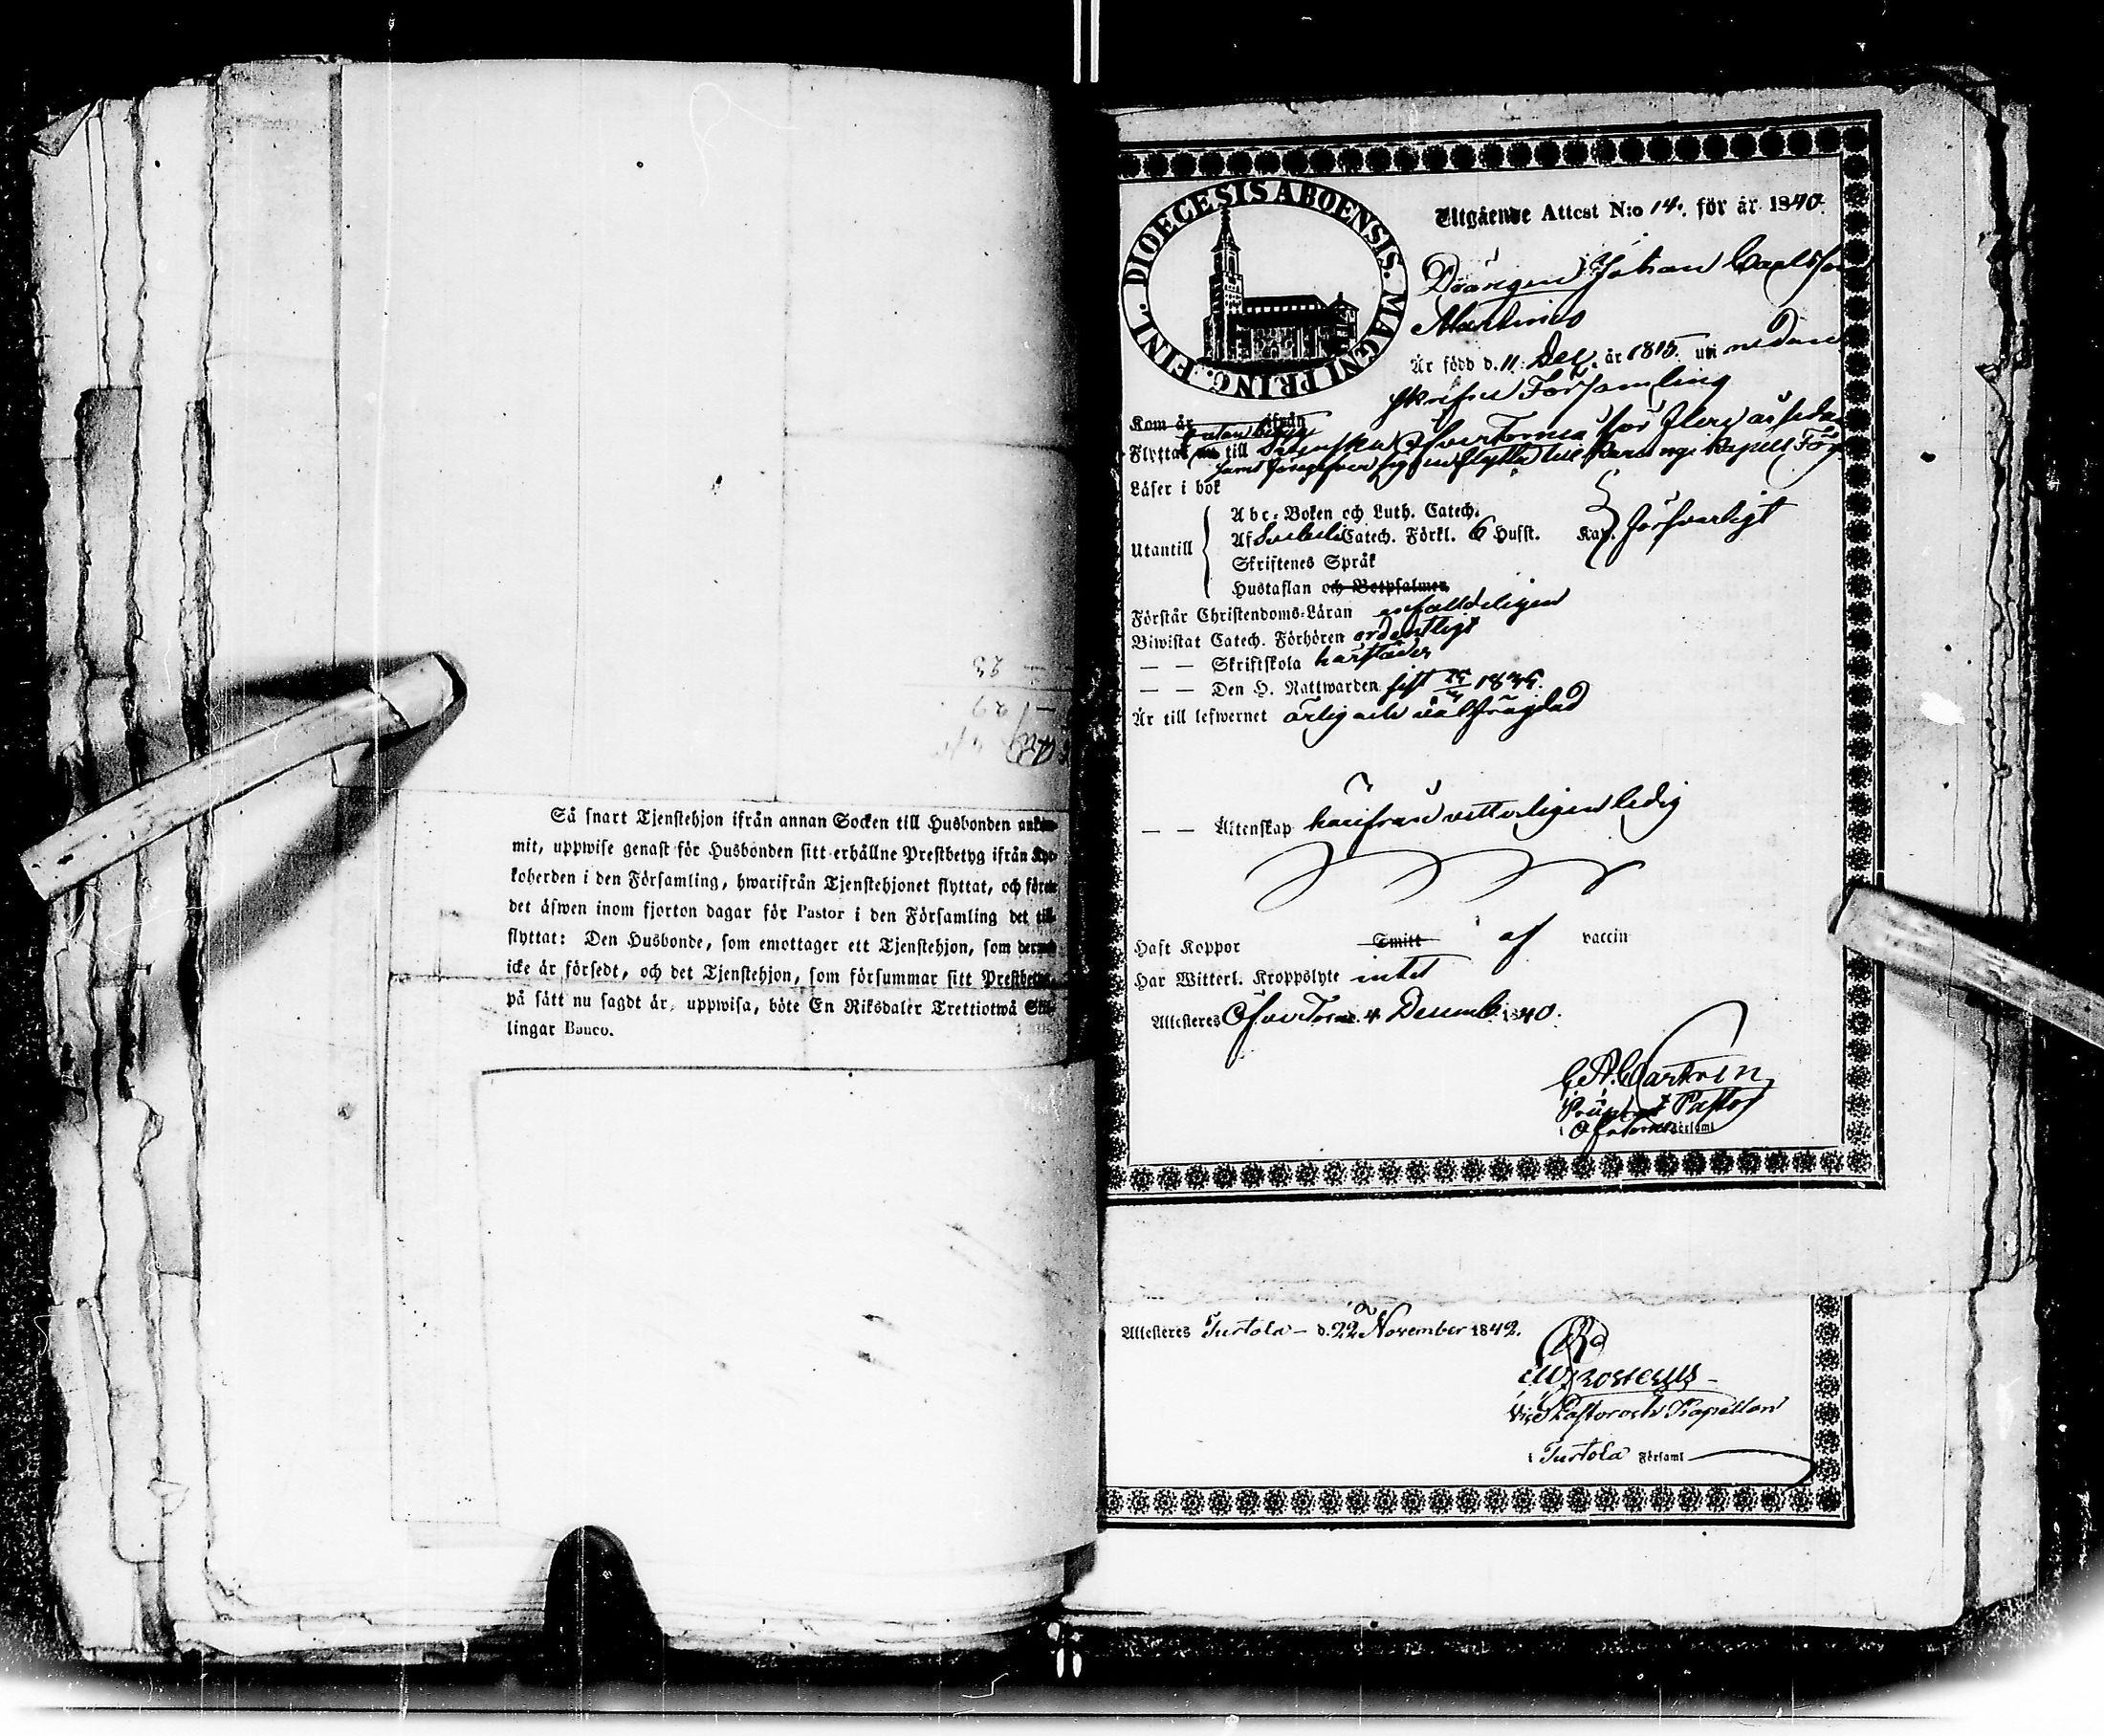 Så snart Tjenstehjon ifrån annan Socken till Husbonden ankom-
mit, uppwise genast för Husbonden sitt erhållne Prestbetyg ifrån Kyr-
koherden i den Församling, hwarifrån Tjenstehjonet flyttat, och förete
det äfwen inom fjorton dagar för Pastor i den Församling det till-
flyttat: Den Husbonde, som emottager ett Tjenstehjon, som dermed
icke är försedt, och det Tjenstehjon, som försummar sitt Prestbetyg,
på sätt nu sagdt är, uppwisa, böte En Riksdaler Trettiotwå Skil-
lingar Banco.
DIOECESIS ABOENSIS. MAGNI PRINC. FINL.
Utgående Attest N:o 14. för år 1840.
Drängen Johan Carlsson
Martimo
Är född d. 11 Dec. år 1815. uti nedan
skrifne Församling
Kom år ifrån
Flyttat till Svenska Öfvertorneå för flere år sedan
samt säger sig nu flytta till Karungi Kapell Förs
Läser i bok
Utantill
Abc-Boken och Luth. Catech.
Af Svebelii Catech. Förkl. 6 Hufst. Kap. försvarligt
Skriftenes Språk
Hustaflan och Botpsalmen
Förstår Christendoms-Läran enfalldeligen
Biwistat Catech. Förhören ordentligt
— — Skriftskola härstädes
— — Den H. Nattwarden sist
Är till lefwernet ärlig och väl frägdad
— — Äktenskap härifrån vitterligen ledig
Haft Koppor Smitt af vaccin
Har Witterl. Kroppslyte intet
Attesteres Öfver Torneå 4 Decemb. 1840.
Prost Pastor
i Församl
Attesteres Turtola – d. 22 November 1842.
Vice Pastor och Kapellan
i Turtola Församl